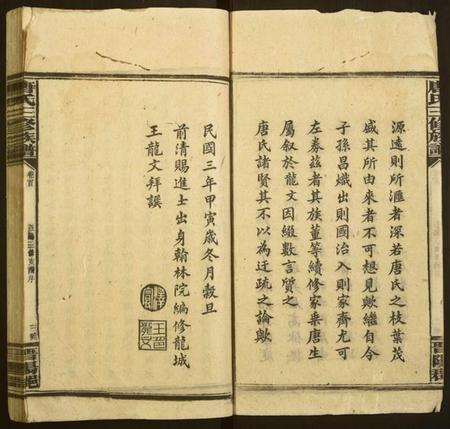 源遠則所滙者深若唐氏之枝葉茂
盛其所由來者不可想見歟繼自今
子孫昌熾出則國治入則家齊尤可
左券茲者其族董等續修家乘唐生
屬叙於龍文因綴數言質之
唐氏諸賢其不以為迂疏之論歟
民國三年甲寅歲冬月穀旦
前清賜進士出身翰林院編修龍城
王龍文拜譔
唐氏三修族譜
卷首
唐氏三修族譜
晉陽堂